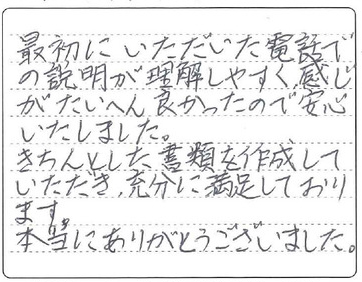 最初に いただいた電話で
の説明が理解しやすく、感じ
がたいへん良かったので安心
いたしました。
きちんとした書類を作成して
いただき、充分に満足しており
ます。
本当にありがとうございました。